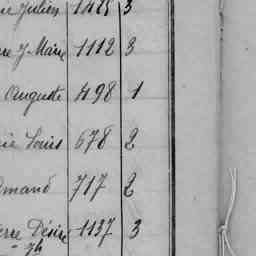 Julien 1425 3
J Marie 1112 3
Auguste 498 1
Louis 678 2
mand 717 2
erre Désiré 1137 3